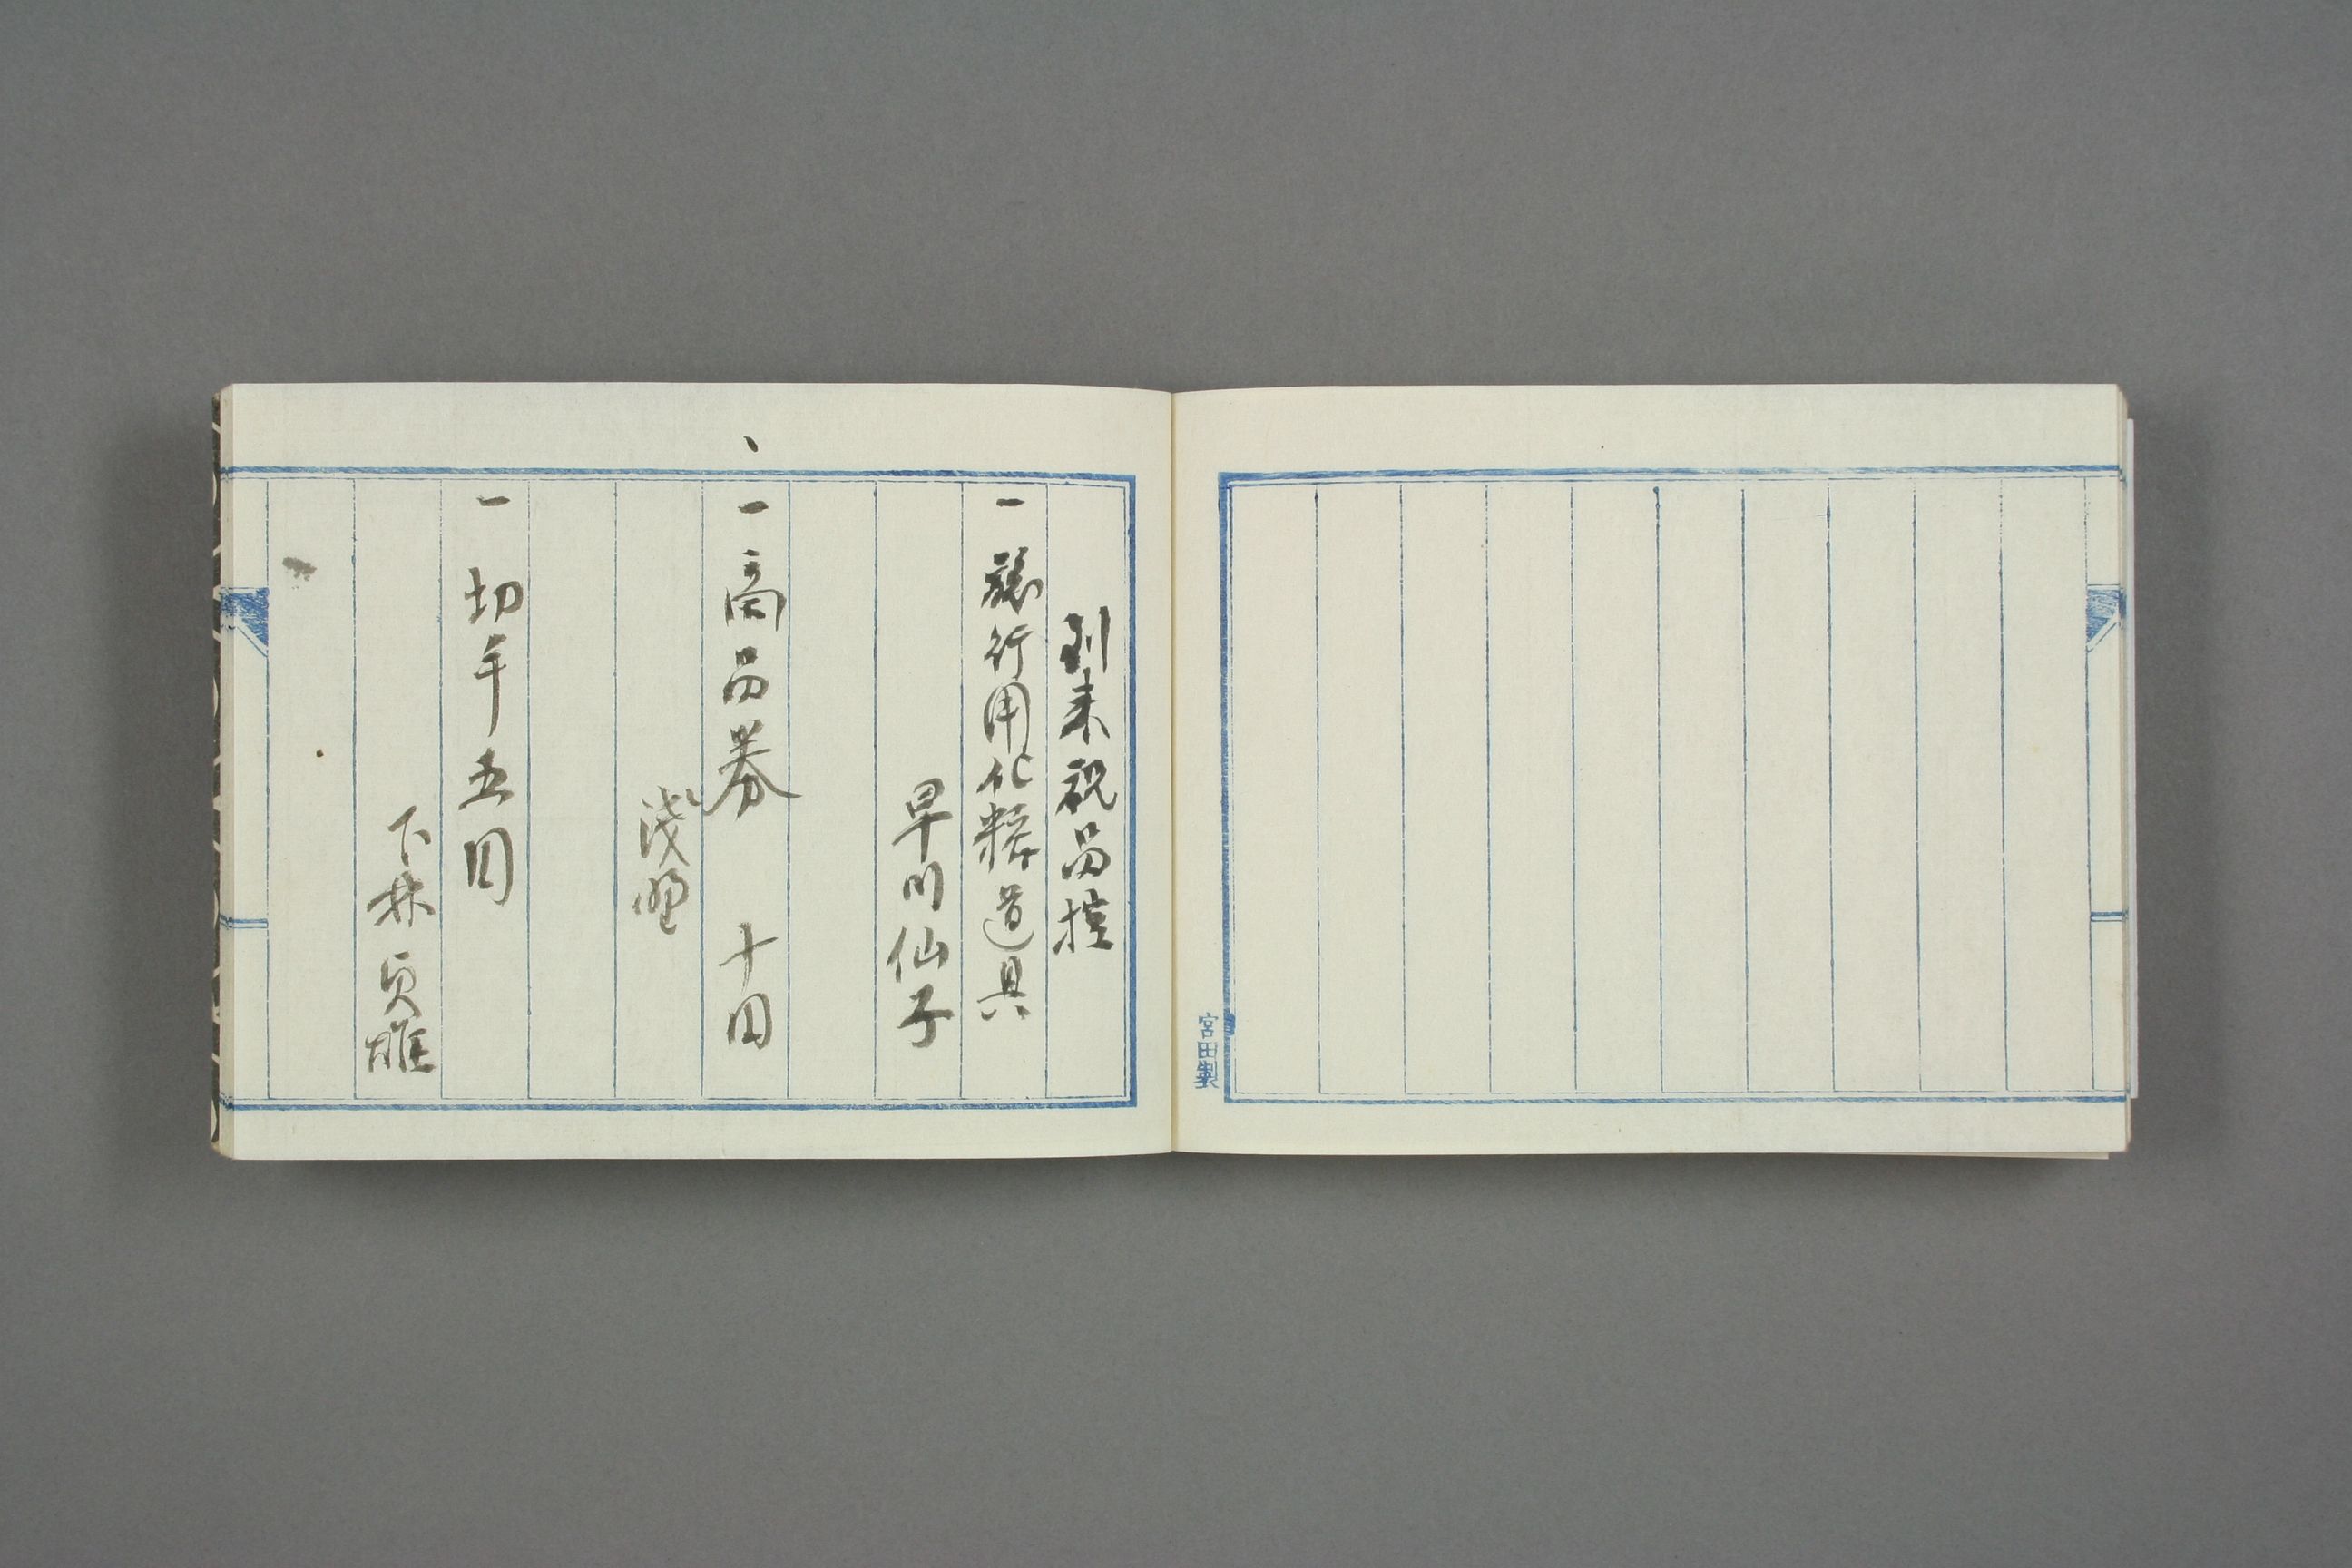 宮田製
到来祝品控
一 旅行用化粧道具
早川仙子
、
一 商品券 十円
浅野
一 切手五円
下林貞雄